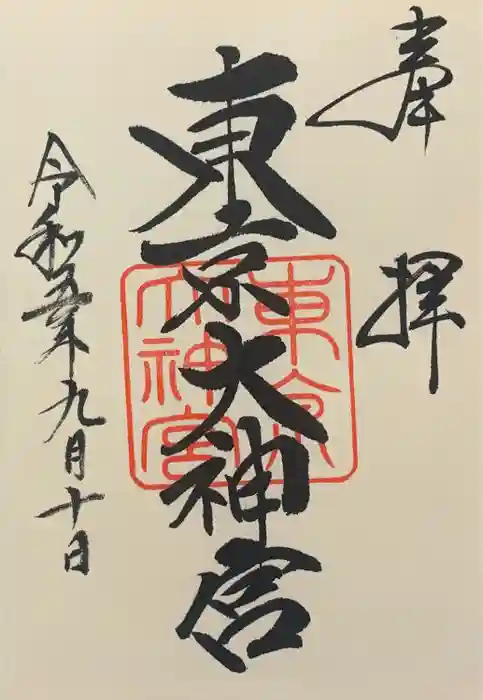 奉拝
東京大神宮
東京
大神宮
令和五年九月十日